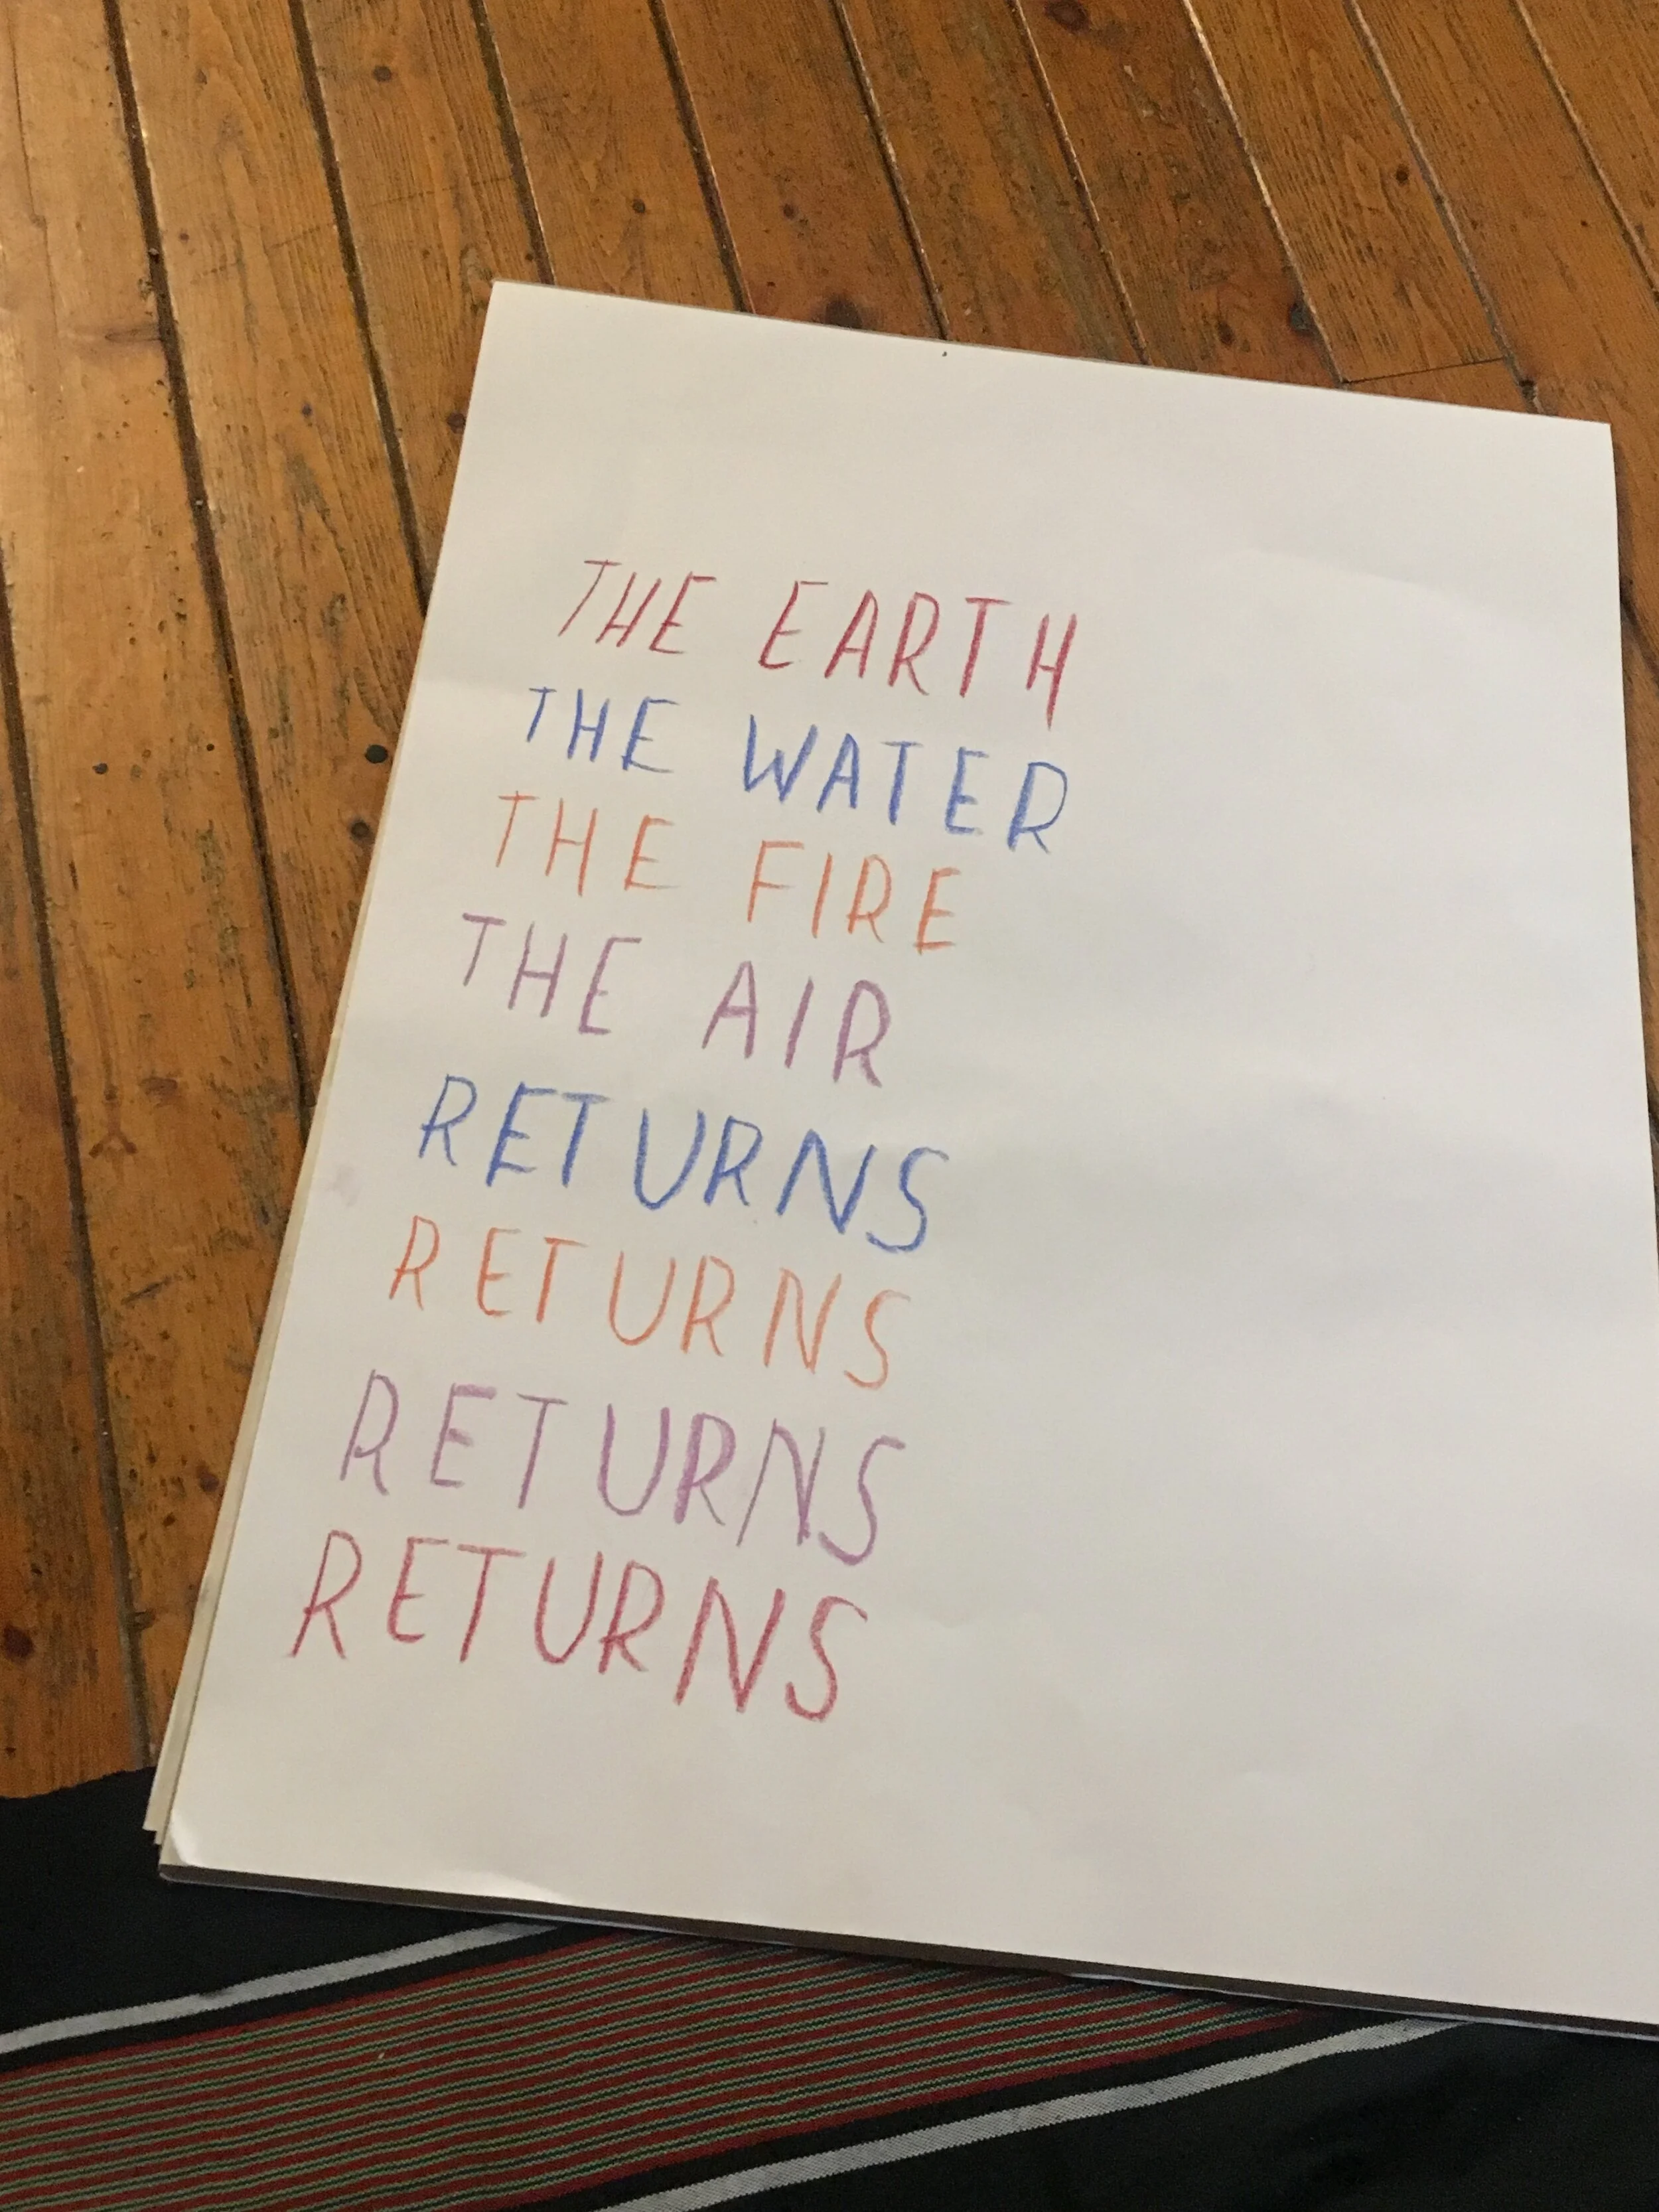 THE EARTH
THE WATER
THE FIRE
THE AIR
RETURNS
RETURNS
RETURNS
RETURNS